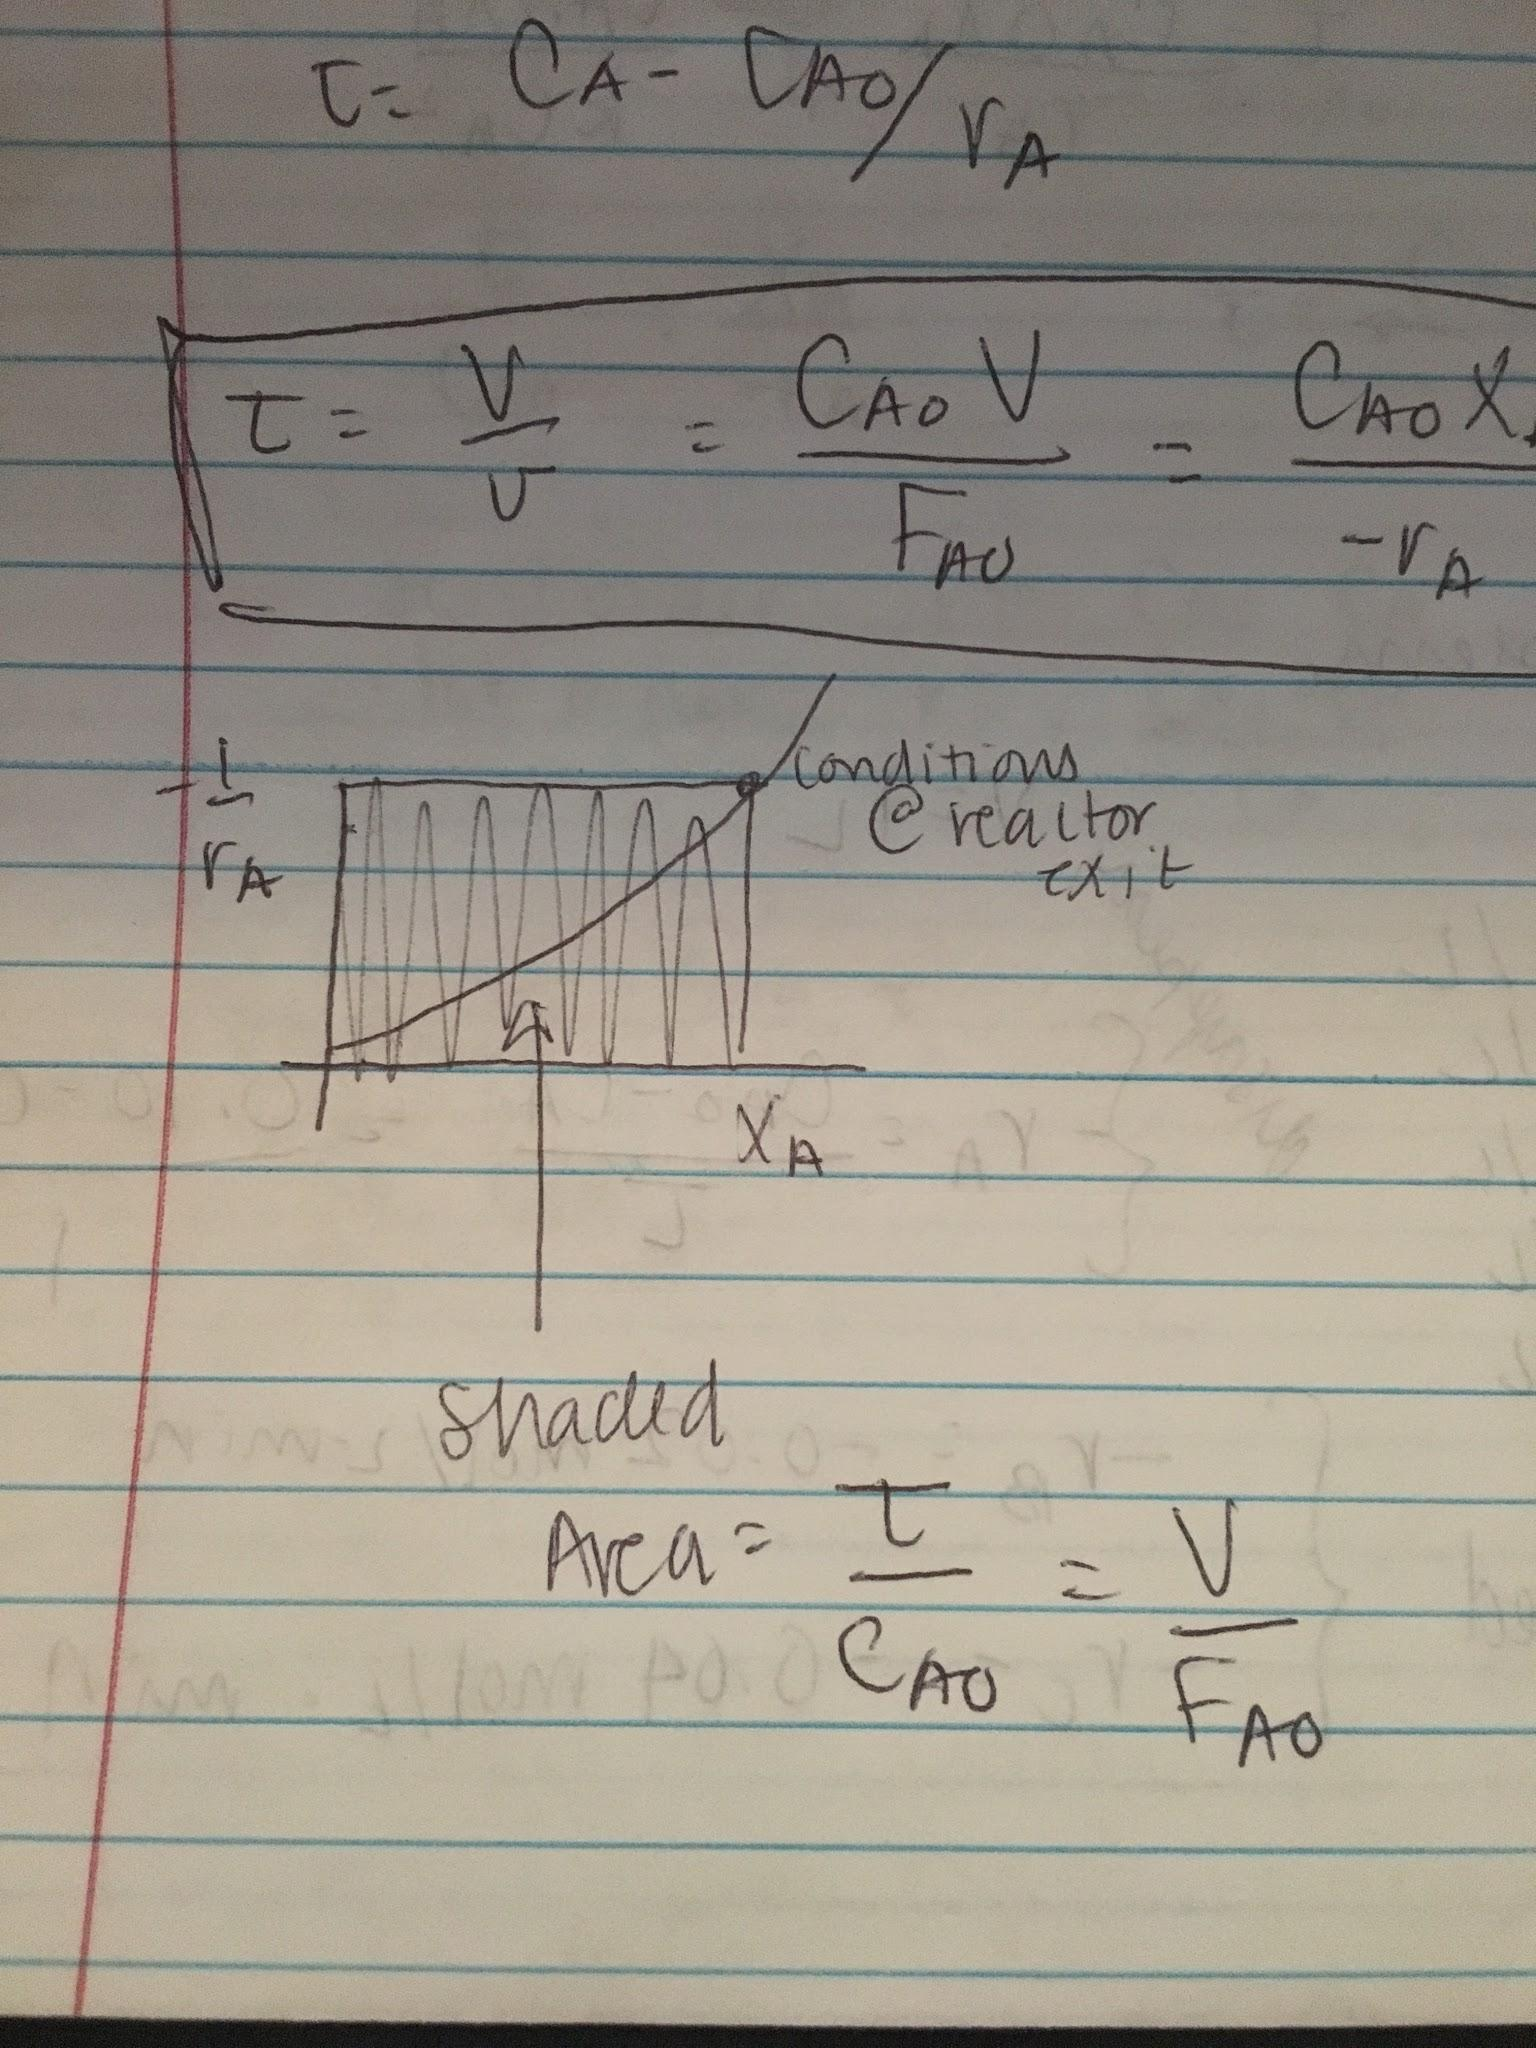 τ = CA - CAO/rA
τ = V/v = CAO V/FAO = CAO X/-rA
-1/rA
conditions
@ reactor
exit
XA
shaded
Area = τ/CAO = V/FAO